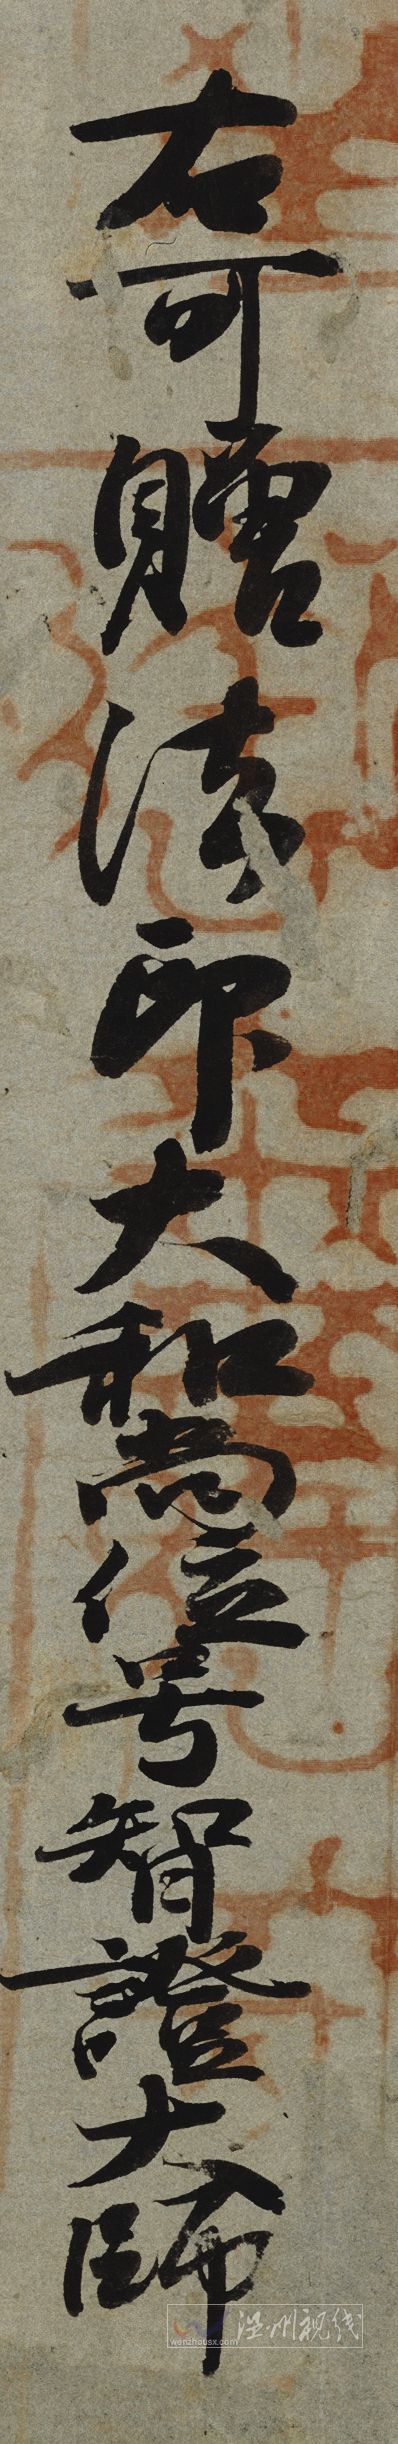 右可贈法印大和尚位号智證大師
温州视线
wenzhousx.com